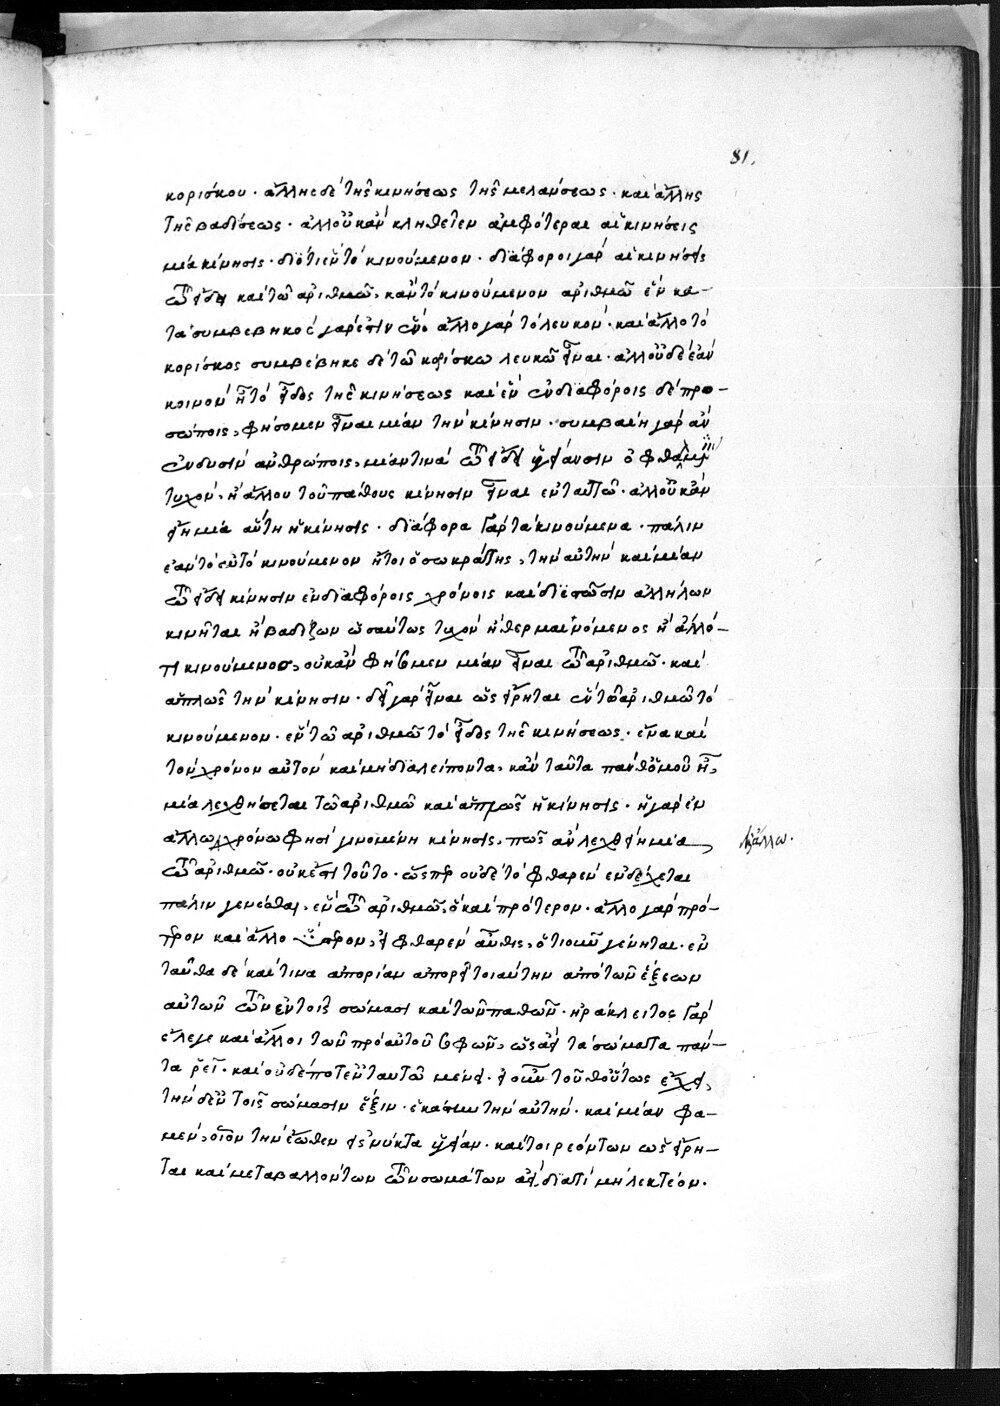 81.
κορίσκου· ἄλλης δὲ τῆς κινήσεως τῆς μελάνσεως· καὶ ἄλλης
τῆς βαδίσεως· ἀλλ' οὐκ ἂν κληθεῖεν ἀμφότεραι αἱ κινήσεις
μία κίνησις· διότι ἓν τὸ κινούμενον· διάφοροι γὰρ αἱ κινήσεις
τῷ εἴδει καὶ τῷ ἀριθμῷ, κἂν τὸ κινούμενον ἀριθμῷ ἓν κα-
τὰ συμβεβηκὸς γάρ ἐστιν ἕν· ἄλλο γὰρ τὸ λευκόν· καὶ ἄλλο τὸ
κορίσκος συμβέβηκε δὲ τῷ κορίσκω λευκῷ εἶναι· ἀλλ' οὐδὲ ἐὰν
κοινὸν ᾖ τὸ εἶδος τῆς κινήσεως καὶ ἓν ἐν διαφόροις δὲ προ-
σώποις, φήσομεν εἶναι μίαν τὴν κίνησιν· συμβαίη γὰρ ἂν
ἐν δυσὶν ἀνθρώποις, μίαν τινὰ τῷ εἴδει ὑγίανσιν ὀφθαλμ
τυχὸν, ἢ ἄλλου του πάθους κίνησιν εἶναι ἐν ταυτῷ· ἀλλ' οὐκ ἂν
εἴη μία αὕτη ἡ κίνησις· διάφορα γὰρ τὰ κινούμενα· πάλιν
ἐὰν τὸ αὐτὸ κινούμενον ἤτοι ὁ σωκράτης, τὴν αὐτὴν καὶ μίαν
τῷ εἴδει κίνησιν ἐν διαφόροις χρόνοις καὶ διεστῶσιν ἀλλήλων
κινῆται ἢ βαδίζων ὡσαύτως τυχὸν ἢ θερμαινόμενος ἢ ἄλλό-
τι κινούμενος, οὐκ ἂν φήσωμεν μίαν εἶναι τῷ ἀριθμῷ· καὶ
ἁπλῶς τὴν κίνησιν· δεῖ γὰρ εἶναι ὡς εἴρηται ἓν τῷ ἀριθμῷ τὸ
κινούμενον· ἓν τῷ ἀριθμῷ τὸ εἶδος τῆς κινήσεως· ἕνα καὶ
τὸν χρόνον αὐτὸν καὶ μὴ διαλείποντα· κἂν ταῦτα πάνθ' ὁμοῦ ᾖ,
μία λεχθήσεται τῷ ἀριθμῷ καὶ ἁπλῶς ἡ κίνησις· ἡ γὰρ ἐν
ἄλλω χρόνω φησὶ γινομένη κίνησις, πῶς ἂν λεχθείη μία
ἄλλω.
τῷ ἀριθμῷ· οὐκ ἔστι τοῦτο· ὥσπερ οὐδὲ τὸ φθαρὲν ἐνδέχεται
πάλιν γενέσθαι, ἓν τῷ ἀριθμῷ, ὃ καὶ πρότερον· ἄλλο γὰρ πρό-
τερον καὶ ἄλλο ὕστερον, εἰ φθαρὲν αὖθις, ὁτιοῦν γένηται· ἐν
ταῦθα δὲ καί τινα ἀπορίαν ἀπορεῖ τοιαύτην ἀπὸ τῶν ἕξεων
αὐτῶν τῶν ἐν τοῖς σώμασι καὶ τῶν παθῶν· ἡράκλειτος γὰρ
ἔλεγε καὶ ἄλλοι τῶν πρὸ αὐτοῦ σοφῶν, ὡς ἀεὶ τὰ σώματα πάν-
τα ῥεῖ· καὶ οὐδέποτε ἐν ταυτῷ μένει· εἰ οὖν τοῦθ' οὕτως ἔχει,
τὴν δὲ ἐν τοῖς σώμασιν ἕξιν· ἑκάστην τὴν αὐτὴν· καὶ μίαν φα-
μὲν, οἷον τὴν ἕωθεν εἰς νύκτα ὑγείαν· καίτοι ρεόντων ὡς εἴρη-
ται καὶ μεταβαλλόντων τῶν σωμάτων ἀεί, διατί μὴ λεκτέον.